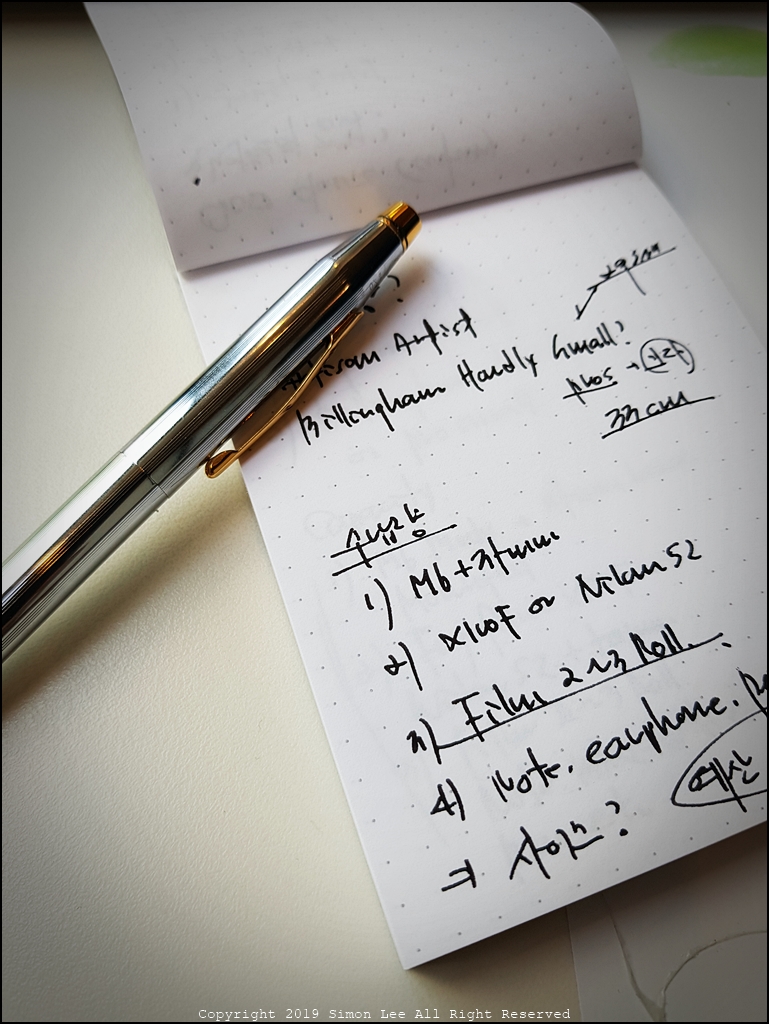 ?
Artisan Artist
Billingham Hardly Small?
33cm
수납용
1) M6+35mm
2) X100F or Nikon S2
3) Film 2~3 Roll.
4) Note. earphone.
⇒ 사이즈?
Copyright 2019 Simon Lee All Right Reserved